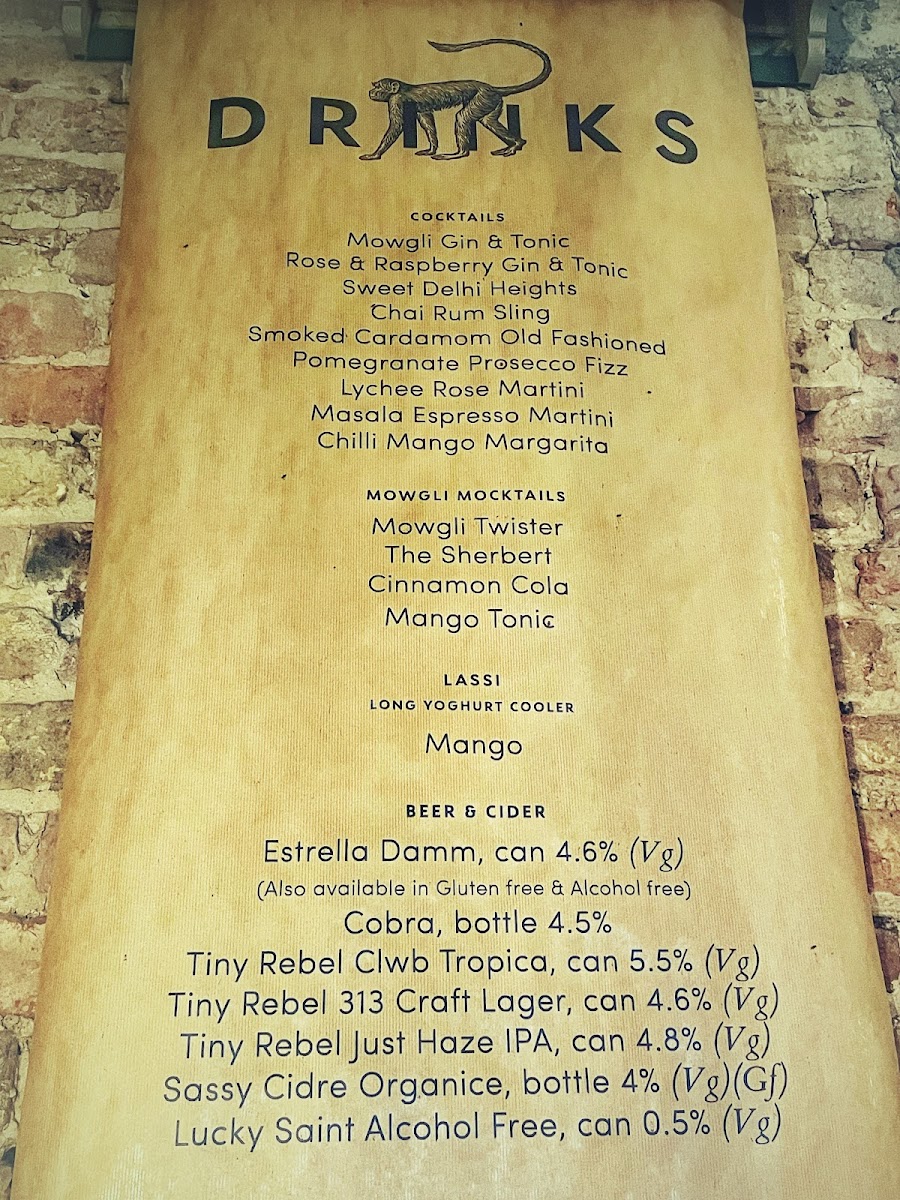 DRINKS
COCKTAILS
Mowgli Gin & Tonic
Rose & Raspberry Gin & Tonic
Sweet Delhi Heights
Chai Rum Sling
Smoked Cardamom Old Fashioned
Pomegranate Prosecco Fizz
Lychee Rose Martini
Masala Espresso Martini
Chilli Mango Margarita
MOWGLI MOCKTAILS
Mowgli Twister
The Sherbert
Cinnamon Cola
Mango Tonic
LASSI
LONG YOGHURT COOLER
Mango
BEER & CIDER
Estrella Damm, can 4.6% (Vg)
(Also available in Gluten free & Alcohol free)
Cobra, bottle 4.5%
Tiny Rebel Clwb Tropica, can 5.5% (Vg)
Tiny Rebel 313 Craft Lager, can 4.6% (Vg)
Tiny Rebel Just Haze IPA, can 4.8% (Vg)
Sassy Cidre Organice, bottle 4% (Vg)(Gf)
Lucky Saint Alcohol Free, can 0.5% (Vg)